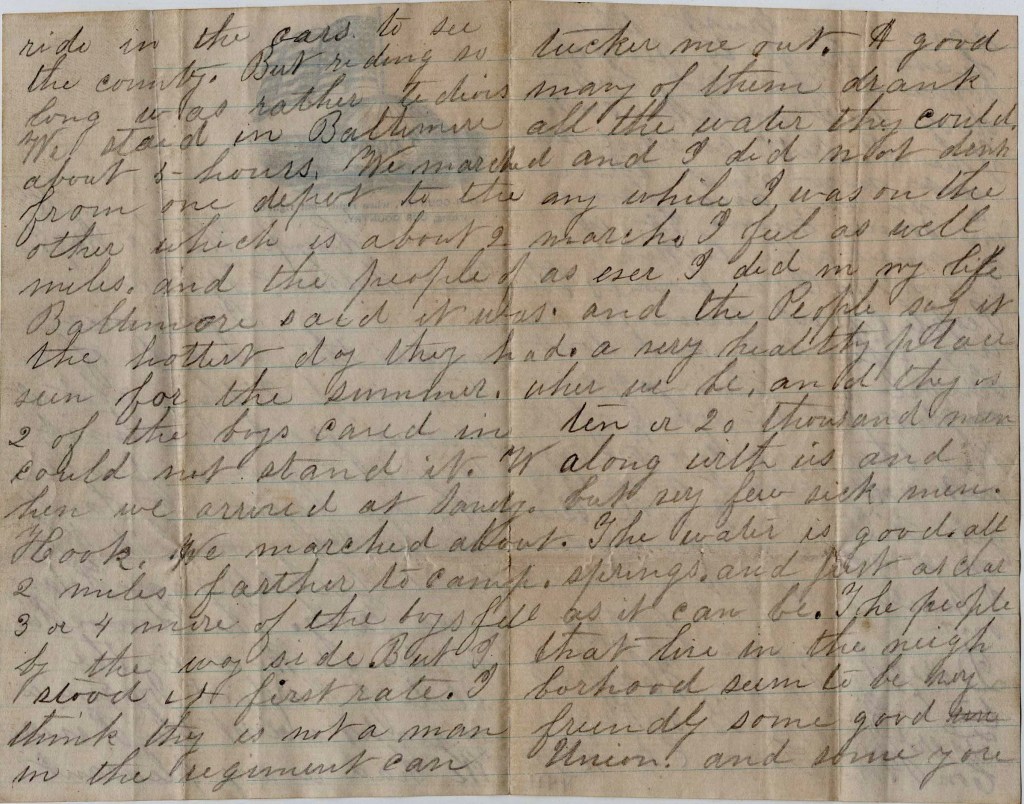 ride in the cars to see
the county. But riding so
long was rather tedious
We staid in Baltimore
about 5 hours. We marched
from one depot to the
other which is about 2
miles. and the people of
Baltimore said it was
the hottest day they had
seen for the summer.
2 of the boys caved in
could not stand it. W
hen we arrived at Sandy
Hook. We marched about
2 miles farther to camp.
3 or 4 more of the boys fell
by the way side. But I
stood it first rate. I
think they is not a man
in the regiment can
tucker me out. A good
many of them drank
all the water they could.
and I did not drink
any while I was on the
march. I feel as well
as ever I did in my life
and the People say it
a very healthy place
wher we be, and they is
ten or 20 thousand men
along with us and
but very few sick men.
The water is good. all
springs. and just as clar
as it can be. The people
that live in the neigh
borhood seem to be very
friendly some good
Union. and some you